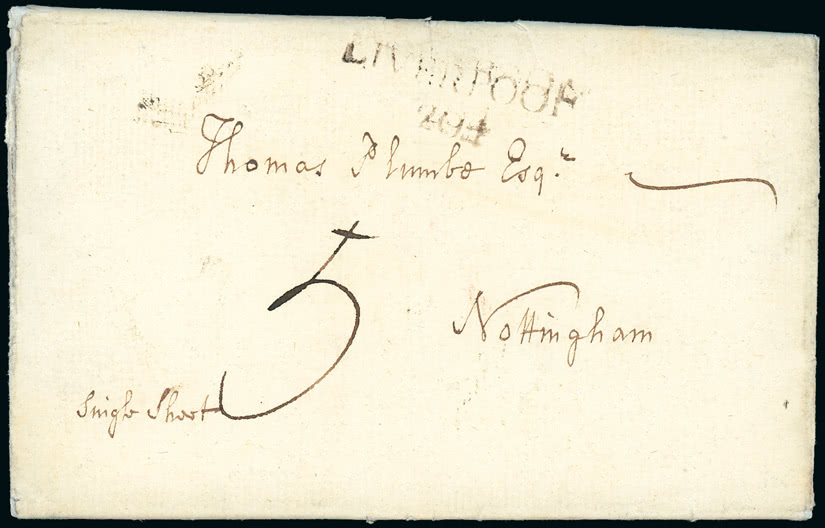 LIVERPOOL
204
Thomas Plumbe Esqr.
5
Nottingham
Single Sheet